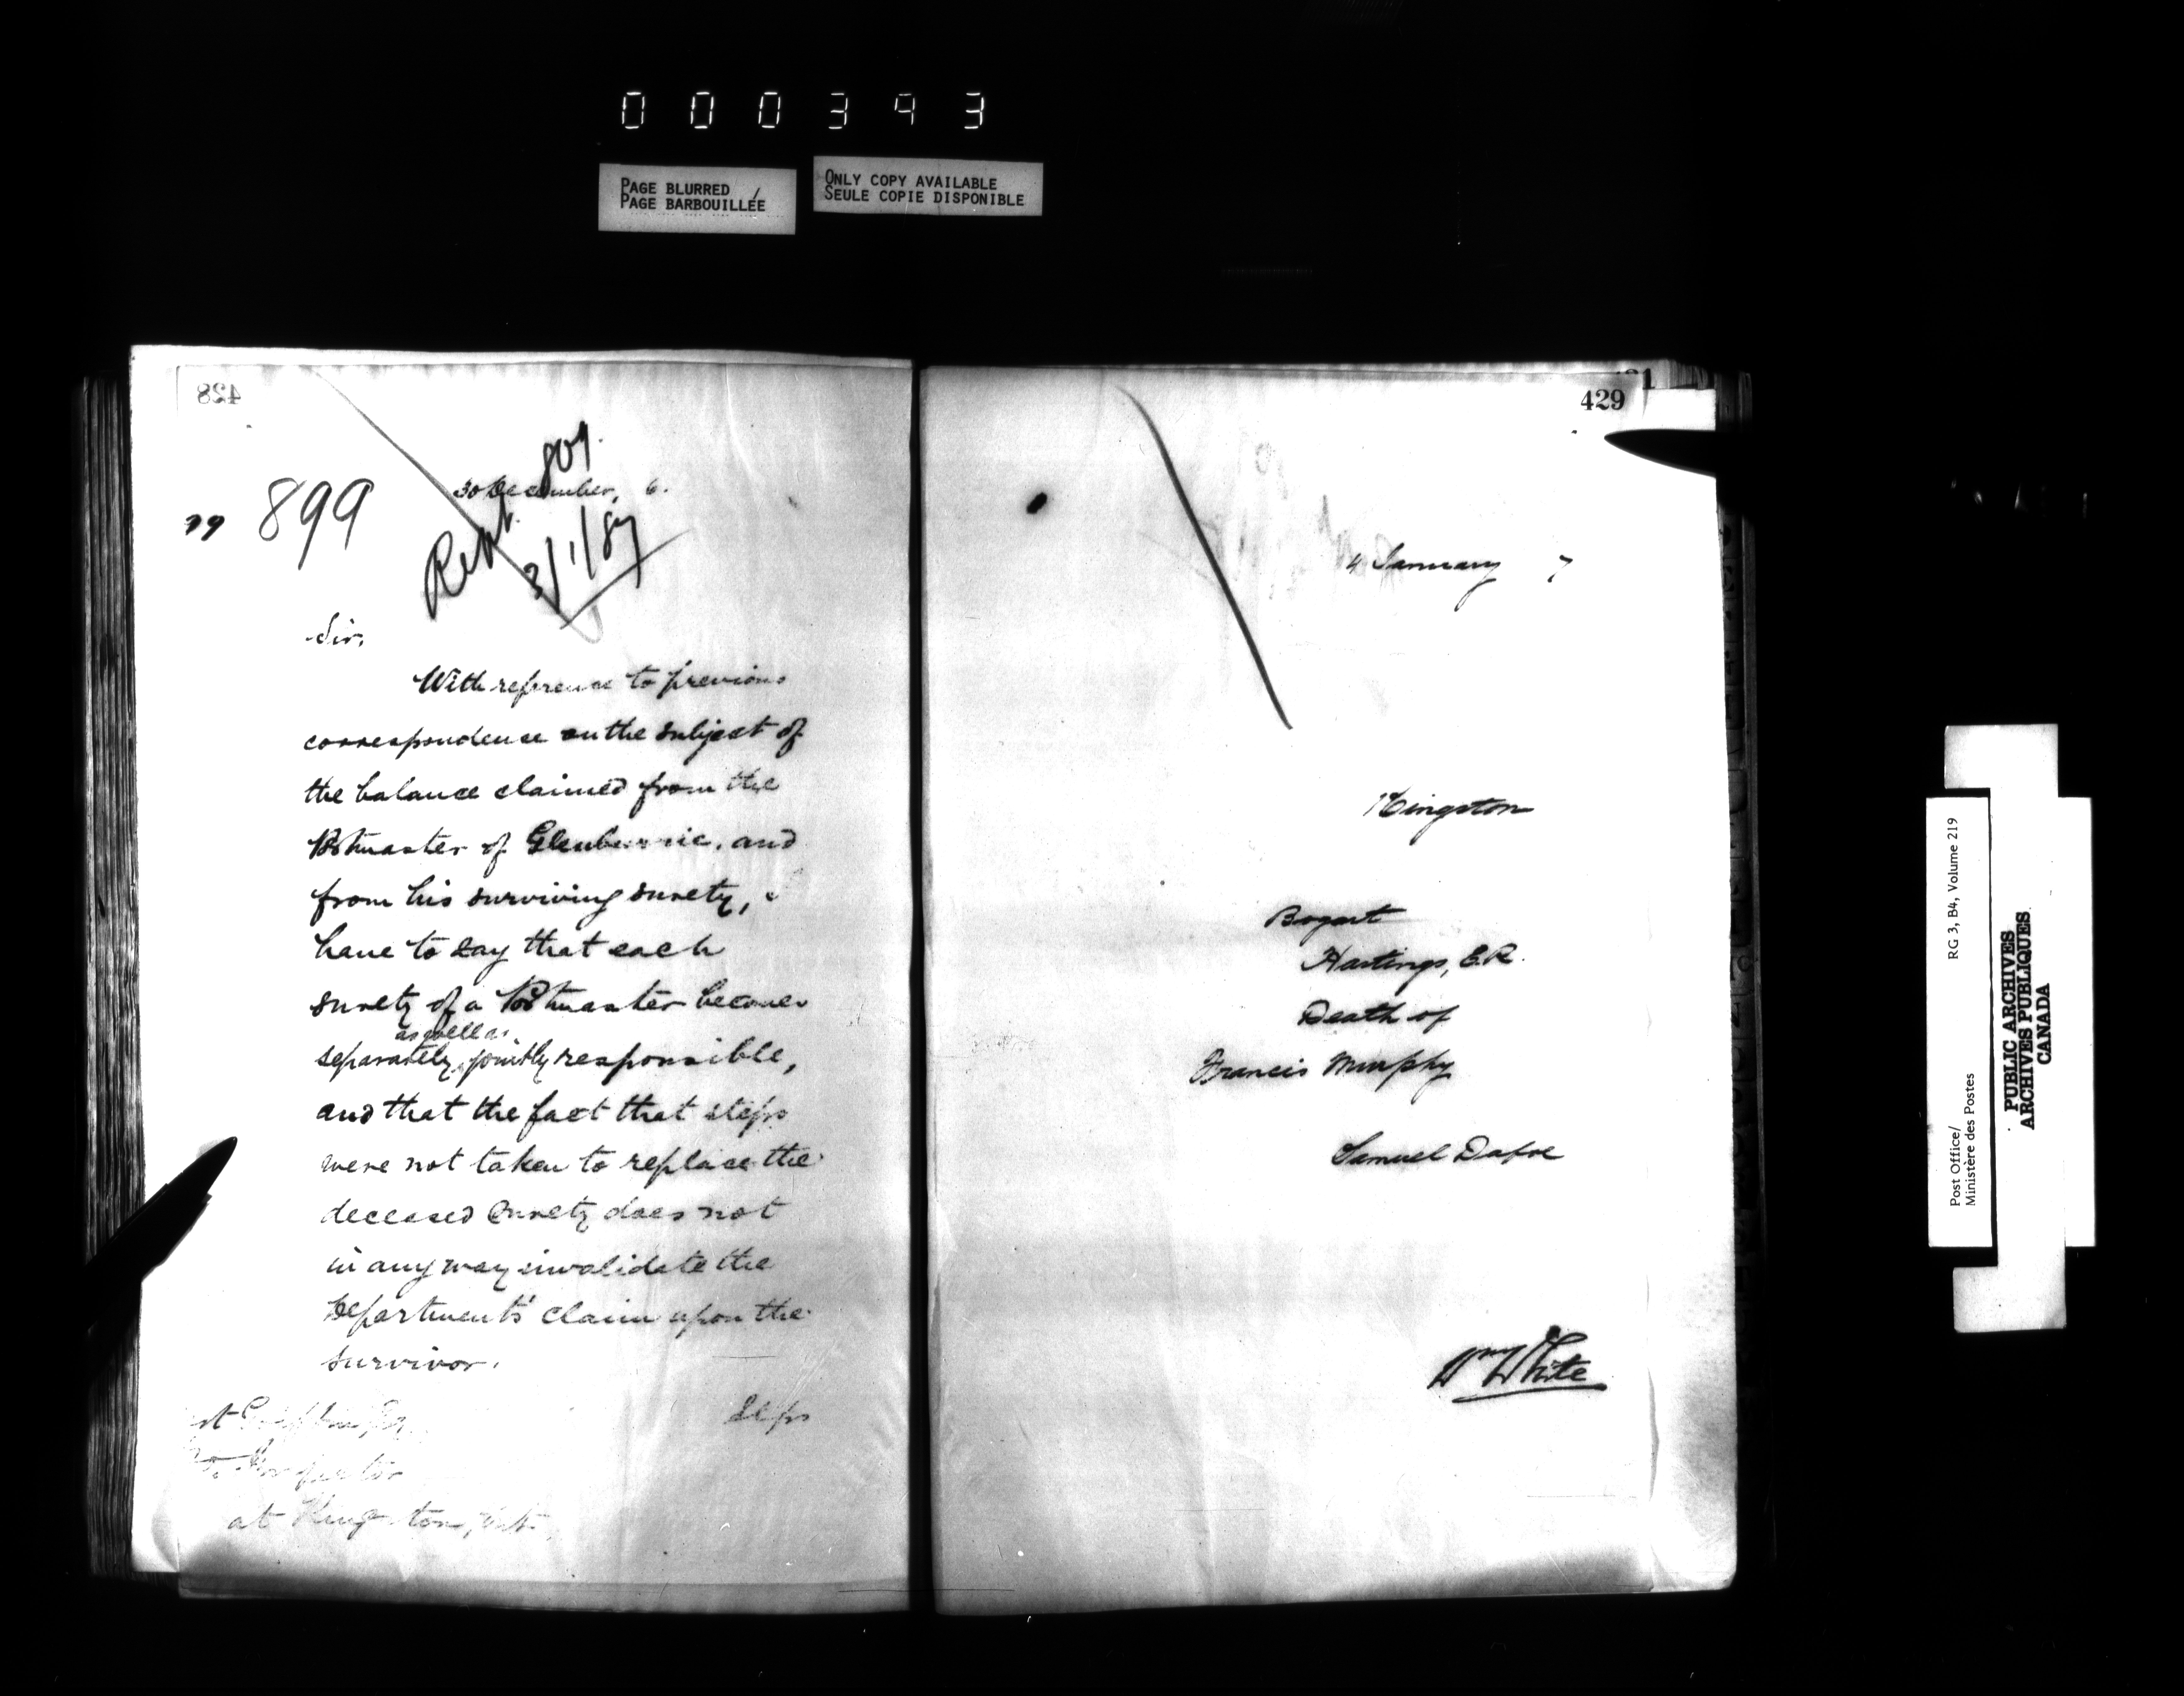 000393
PAGE BLURRED /
PAGE BARBOUILLÉE
ONLY COPY AVAILABLE
SEULE COPIE DISPONIBLE
428
809.
30 December, 6.
79 899
Rept.
3/1/87
Sir,
With reference to previous
correspondence on the subject of
the balance claimed from the
Postmaster of Glenburnie, and
from his surviving surety, I
have to say that each
surety of a Postmaster becomes
as well as
separately, jointly responsible,
and that the fact that steps
were not taken to replace the
deceased surety does not
in any way invalidate the
Department's claim upon the
survivor.
Steps
at Kingston,
429
4 January 7
Kingston
Bogart
Hastings, E.R.
Death of
Francis Murphy
Samuel Dafoe
Wm White
Post Office/
Ministère des Postes
RG 3, B4, Volume 219
PUBLIC ARCHIVES
ARCHIVES PUBLIQUES
CANADA